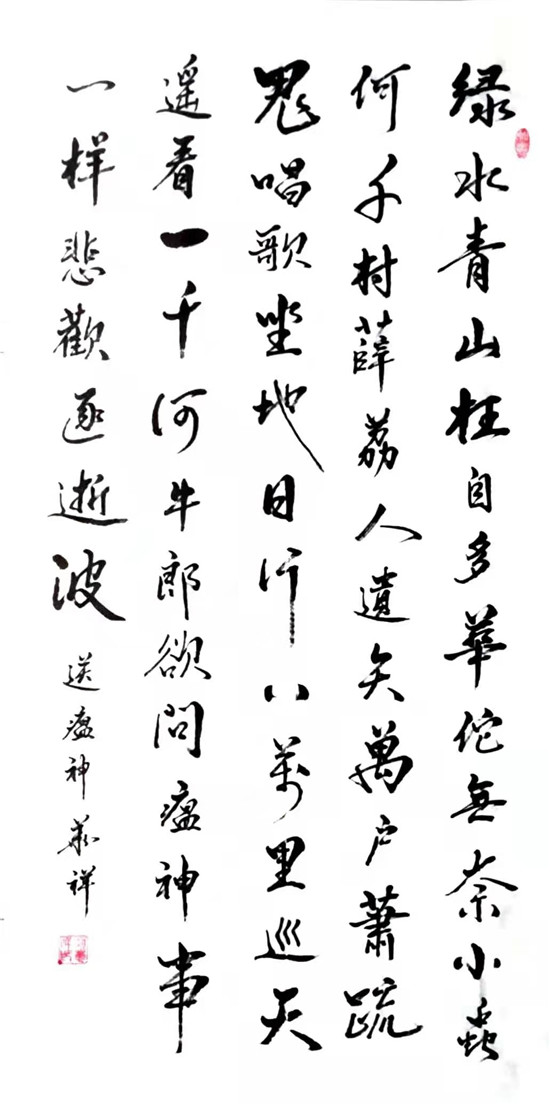 绿水青山枉自多華佗無奈小蟲
何千村薜荔人遺矢萬户蕭疏
鬼唱歌坐地日行八萬里巡天
遥看一千河牛郎欲問瘟神事
一样悲歡逐逝波
送瘟神 祥